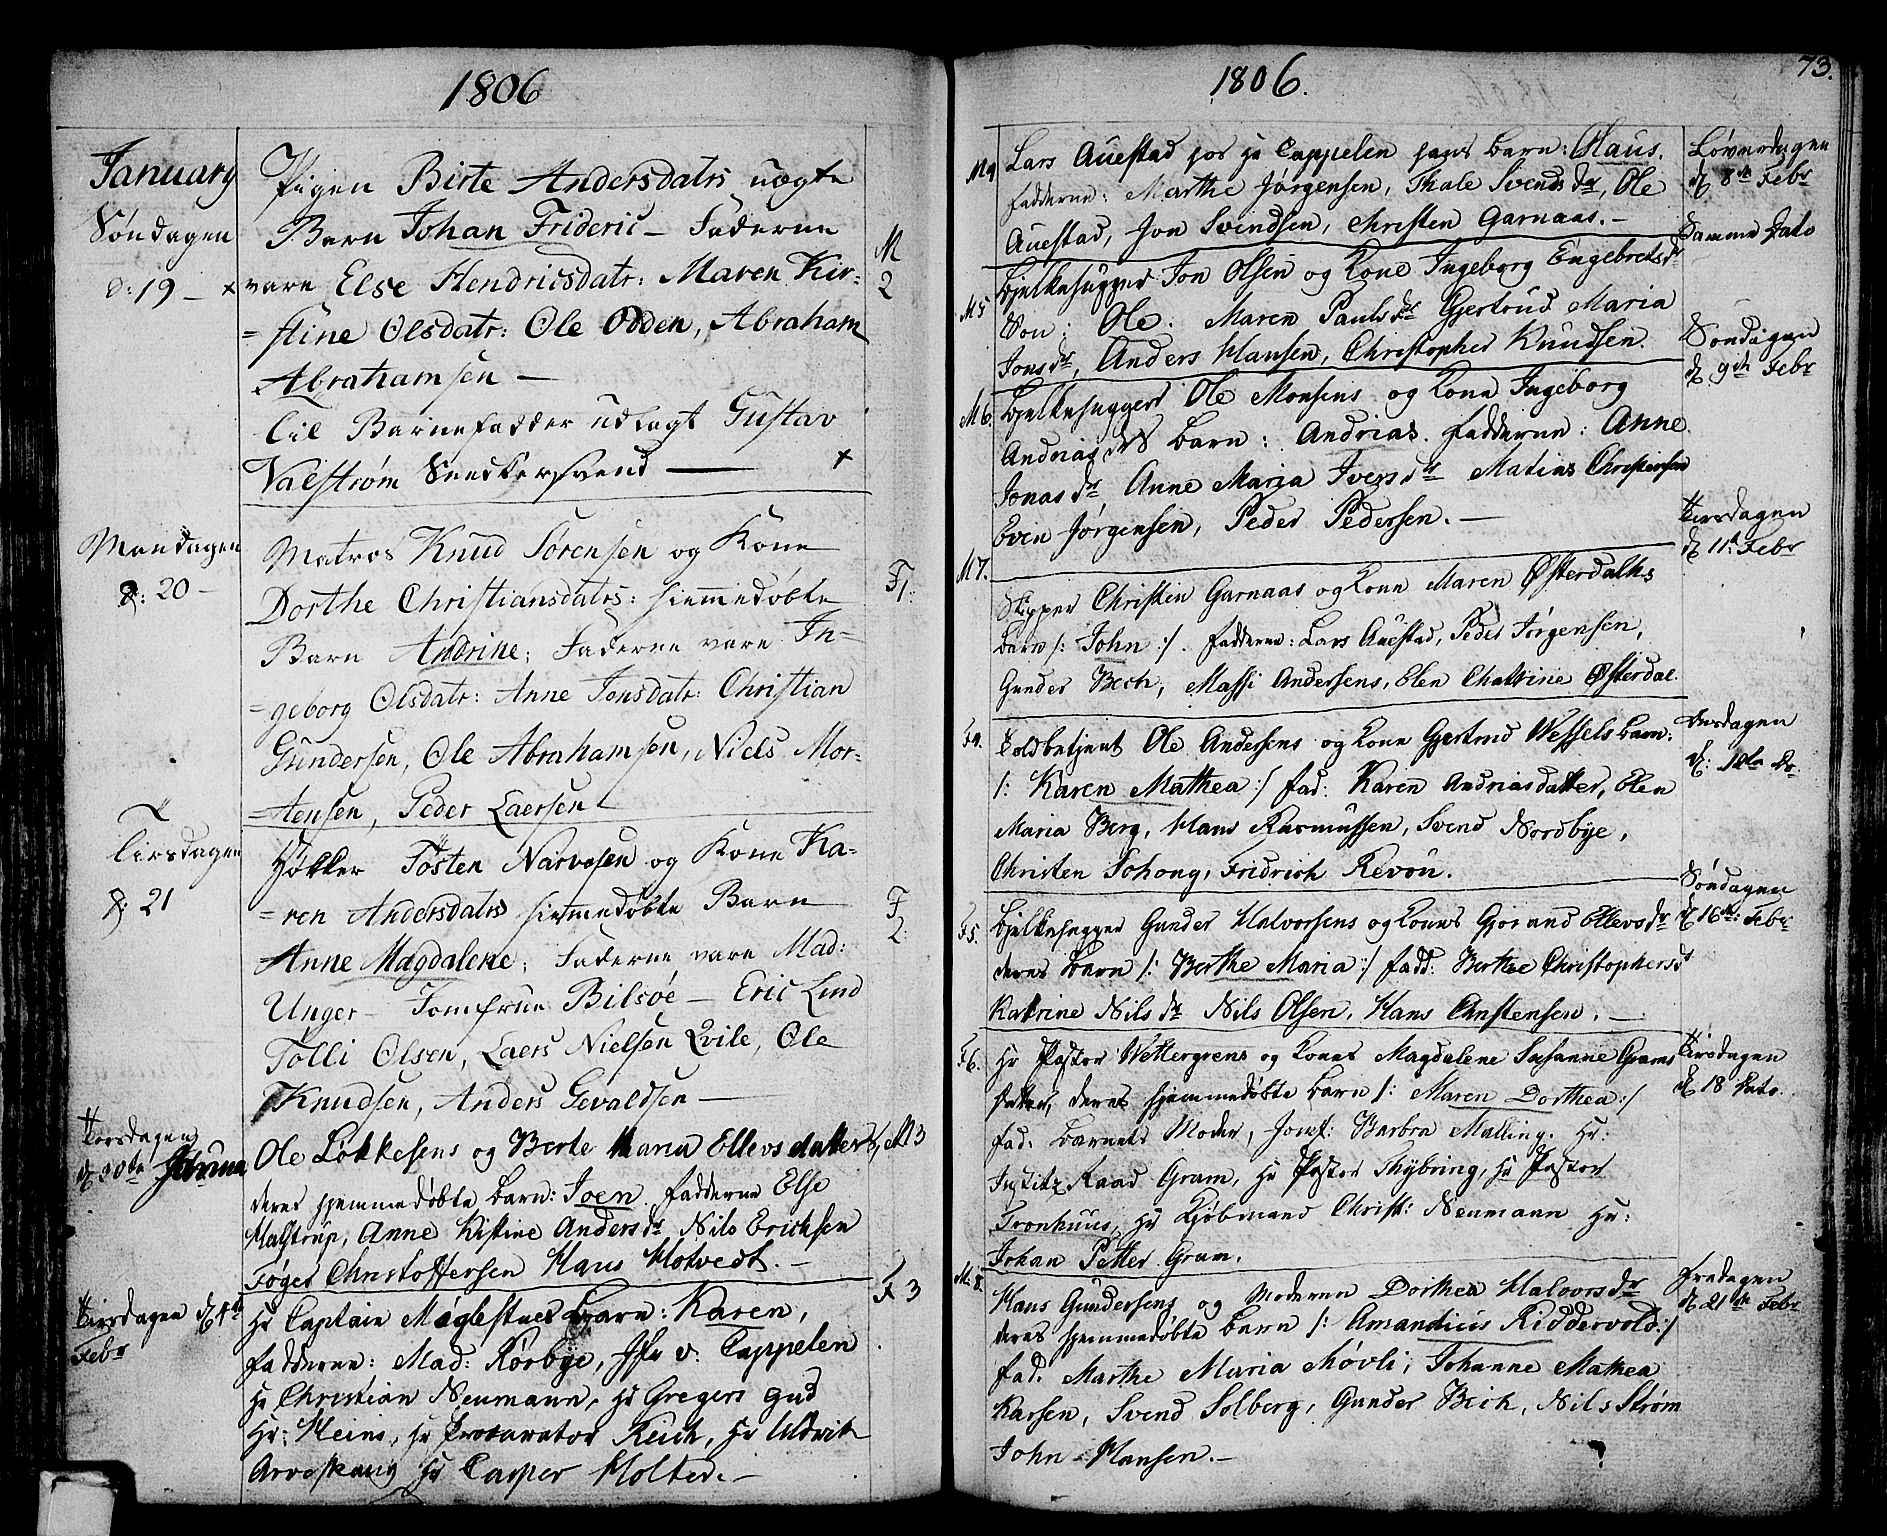 1806
January
Søndagen
d: 19 –
Pigen Birte Andersdatrs uægte
Barn Johan Frideric – Faderne
× vare Else Hendricsdatr: Maren Kir-
= stine Olsdatr: Ole Odden, Abraham
Abrahamsen –
til Barnefadder udlagt Gustav
Valstrøm Snedkersvend — ×
M
2
Mandagen
d: 20 –
Matros Knud Sørensen og Kone
Dorthe Christiansdatrs: hiemmedøbte
Barn Andrine; Faderne vare In-
= geborg Olsdatr: Anne Jonsdatr: Christian
Gundersen, Ole Abrahamsen, Niels Mor-
= tensen, Peder Laersen
F1.
Tirsdagen
d: 21
Høkker Tosten Narvesen og Kone Ka-
= ren Andersdatrs hiemmedøbte Barn
Anne Magdalene; Faderne vare Mad:
Unger – Jomfrue Bilsøe – Eric Lund
Tolli Olsen, Laers Nielsen Qvile, Ole
Knudsen, Anders Gevaldsen —
F
2.
Torsdagen
d 30te
Ole Løkkesens og Berte Maria Ellevsdatters, M3
deres hjemmedøbte barn: Joen. fadderne Else
Malstrup, Anne Kistine Andersdr Nils Erichsen
Føger Christoffersen Hans Hotvedt. –
Tirsdagen d 4de
Febr
Hr Captain Møglestues barn: Karen,
fadderne: Mad: Rørbye, Jfr v: Cappelen
Hr Christian Neumann, Hr Gregers Gud
Hr: Heins, Hr Procurator Reich, Hr Uldrik
Hr Casper Holter. –
F 3
1806.
73.
M4
Lars Auestad hos Hr Cappelen hans barn: Olaus.
fadderne: Marthe Jørgensen, Thale Svendsdr, Ole
Auestad, Jon Svendsen, Christen Garnaas. –
Løverdagen
d 8de Febr
M5
Bjelkehugger Jon Olsen og Kone Ingeborg Engebretsdr
Søn: Ole. Maren Paulsdr Gjertrud Maria
Jonsdr, Anders Hansen, Christopher Knudsen.
Samme Dato
M6.
Bjelkehugger Ole Monsens og Kone Ingeborg
Andriasdrs barn: Andrias. fadderne: Anne
Jonasdr Anne Maria Iversdr Matias Christensen
Even Jørgensen, Peder Pedersen. –
Søndagen
d 9de Febr
M7.
Skipper Christen Garnaas og Kone Maren Østerdalks
barn /: John :/. fadderne: Lars Auestad, Peder Jørgensen,
Gunder Bech, Massi Andersens, Elen Chatrine Østerdal.
Tirsdagen
d 11te Febr
F4.
Toldbetjent Ole Andersens og Kone Gjertrud Wessels barn:
/: Karen Mathea :/ fad: Karen Andriasdatter, Elen
Maria Berg, Hans Rasmussen, Svend Nordbye,
Christen Tohong, Fridrich Revou.
Onsdagen
d: 12te Do.
F5.
Bjelkehugger Gunder Halvorsens og Kones Gjorand Ellevsdr
deres barn /: Berthe Maria :/ fadd: Berthe Christophersdr
Katrine Nilsdr Nils Olsen, Hans Anstensen. –
Søndagen
d 16de: Febr
F6.
Hr Pastor Wettergrens og Kones Magdalene Susanne Grams
deres hjemmedøbte barn /: Maren Dorthea :/
fad: barnets Moder, Jomf: Barbra Malling. Hr:
Justitz Raad Gram, Hr Pastor Thybring, Hr Pastor
Tronhuus, Hr Kjøbmand Christ: Neumann Hr:
Johan Petter Gram.
Tirsdagen
d 18 Dato.
M. 8.
Hans Gundersens og Moderen Dorthea Halvorsdr
deres hjemmedøbte barn /: Amandius Riddervold :/
fad. Marthe Maria Møvli, Johanne Mathea
Karsen, Svend Solberg, Gunder Bech, Nils Strøm
John Hansen. –
Fredagen
d 21de Febr